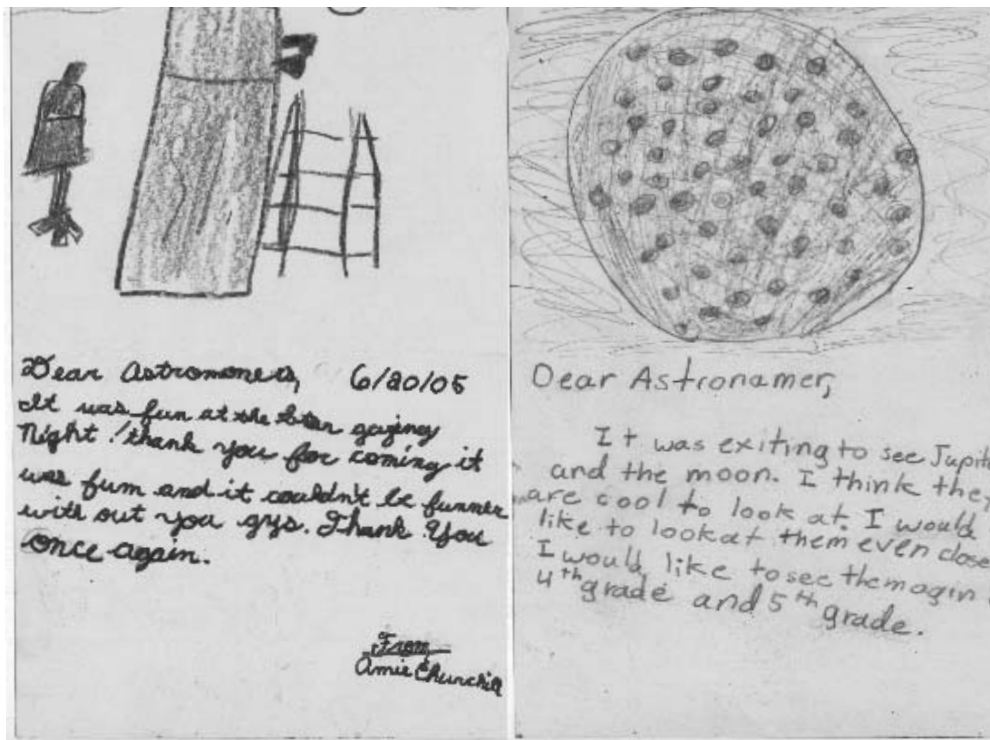 Dear Astromoners, 6/20/05
It was fun at the gazing
Night! thank you for coming it
was fum and it couldn't be funner
with out you gys. Thank You
once again.
From
Amie Churchill
Dear Astronamer,
It was exiting to see Jupit
and the moon. I think they
are cool to look at. I would
like to look at them even close
I would like to see them agin
4th grade and 5th grade.